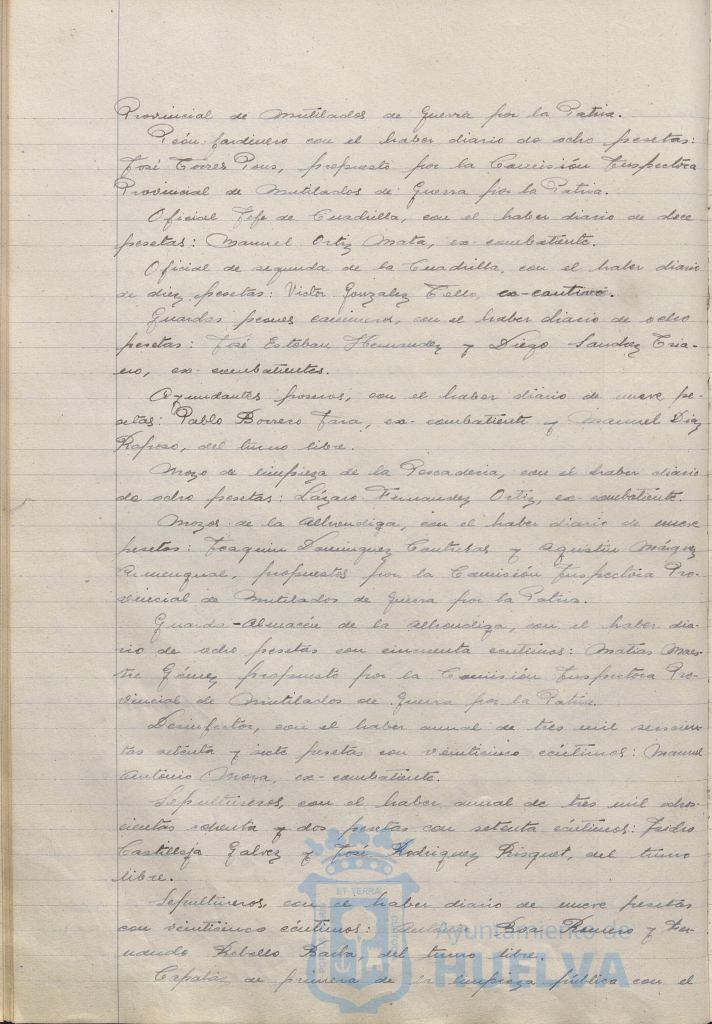 Provincial de Mutilados de Guerra por la Patria.
Peón-jardinero con el haber diario de ocho pesetas:
José Torres Pons, propuesto por la Comisión Inspectora
Provincial de Mutilados de Guerra por la Patria.
Oficial Jefe de Cuadrilla, con el haber diario de doce
pesetas: Manuel Ortiz Mata, ex-combatiente.
Oficial de segunda de la Cuadrilla, con el haber diario
de diez pesetas: Victor Gonzalez Tello, ex-cautivo.
Guardas peones camineros, con el haber diario de ocho
pesetas: José Esteban Hernandez y Diego Sanchez Tria-
no, ex-combatientes.
Ayundantes poseros, con el haber diario de nueve pe-
setas: Pablo Borrero Jara, ex-combatiente y Manuel Diaz
Raposo, del turno libre.
Mozo de limpieza de la Pescaderia, con el haber diario
de ocho pesetas: Lázaro Fernandez Ortiz, ex-combatiente.
Mozos de la Alhondiga, con el haber diario de nueve
pesetas: Joaquin Dominguez Contreras y Agustin Márquez
Armengual, propuestos por la Comisión Inspectora Pro-
vincial de Mutilados de Guerra por la Patria.
Guarda-Almacén de la Alhondiga, con el haber dia-
rio de ocho pesetas con cincuenta céntimos: Matias Maes-
tre Gómez, propuesto por la Comisión Inspectora Pro-
vincial de Mutilados de Guerra por la Patria.
Desinfector, con el haber anual de tres mil seiscien-
tas setenta y siete pesetas con veinticinco céntimos: Manuel
Antonio Mora, ex-combatiente.
Sepultureros, con el haber anual de tres mil ocho-
cientas ochenta y dos pesetas con setenta céntimos: Isidro
Castilleja Galvez y José Rodriguez Risquet, del turno
libre.
Sepultureros, con el haber diario de nueve pesetas
con veinticinco céntimos: Antonio Boza Romero y Fer-
nando Rebollo Barba, del turno libre.
Capataz de primera de la limpieza pública con el
ET TERRA
Ayuntamiento de
HUELVA